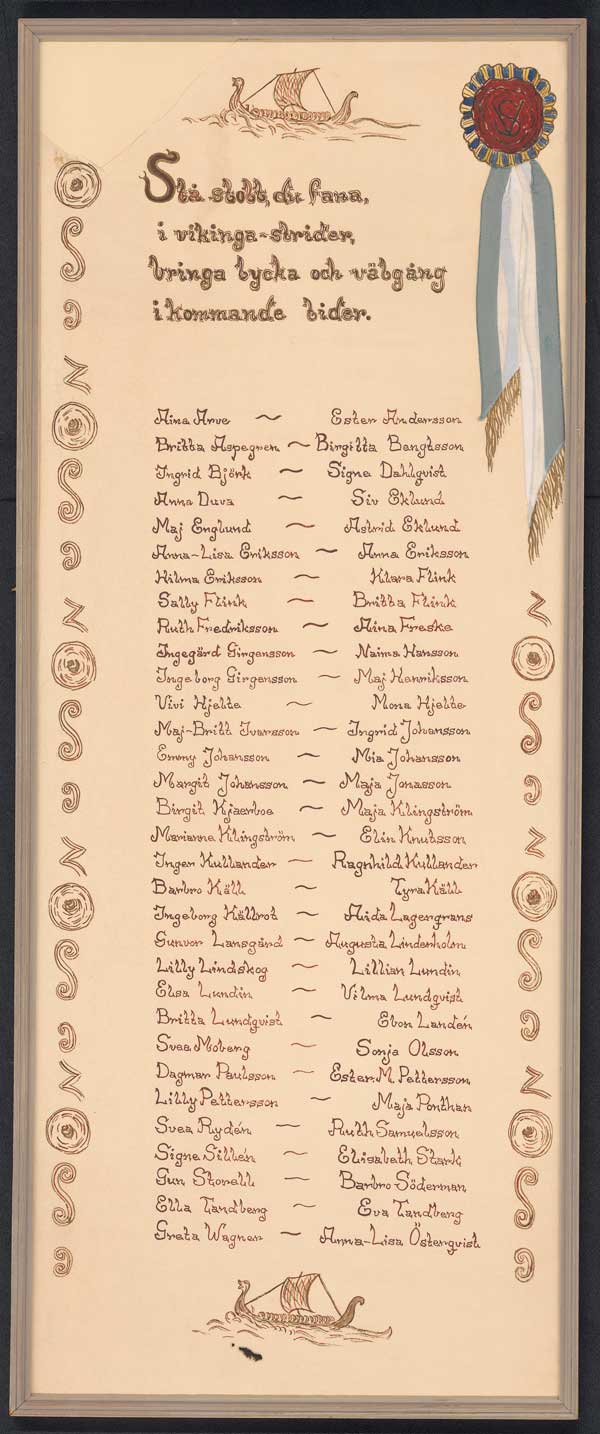 Stå stolt, du fana,
i vikinga-strider,
bringa lycka och välgång
i kommande tider.
Aina Arve ~ Ester Andersson
Britta Aspegren ~ Birgitta Bengtsson
Ingrid Björk ~ Signe Dahlqvist
Anna Duva ~ Siv Eklund
Maj Englund ~ Astrid Eklund
Anna-Lisa Eriksson ~ Anna Eriksson
Hilma Eriksson ~ Klara Flink
Sally Flink ~ Britta Flink
Ruth Fredriksson ~ Aina Freske
Ingegärd Girgensson ~ Naima Hansson
Ingeborg Girgensson ~ Maj Henriksson
Vivi Hjelte ~ Mona Hjelte
Maj-Britt Ivarsson ~ Ingrid Johansson
Emmy Johansson ~ Mia Johansson
Margit Johansson ~ Maja Jonasson
Birgit Kjaerboe ~ Maja Klingström
Marianne Klingström ~ Elin Knutsson
Inger Kullander ~ Ragnhild Kullander
Barbro Käll ~ Tyra Käll
Ingeborg Källrot ~ Aida Lagergrans
Gunvor Lansgård ~ Augusta Lindenholm
Lilly Lindskog ~ Lillian Lundin
Elsa Lundin ~ Vilma Lundqvist
Britta Lundqvist ~ Ebon Landén
Svea Moberg ~ Sonja Olsson
Dagmar Paulsson ~ Ester. M. Pettersson
Lilly Pettersson ~ Maja Ponthan
Svea Rydén ~ Ruth Samuelsson
Signe Sillén ~ Elisabeth Stark
Gun Storell ~ Barbro Söderman
Ella Tandberg ~ Eva Tandberg
Greta Wagner ~ Anna-Lisa Österqvist